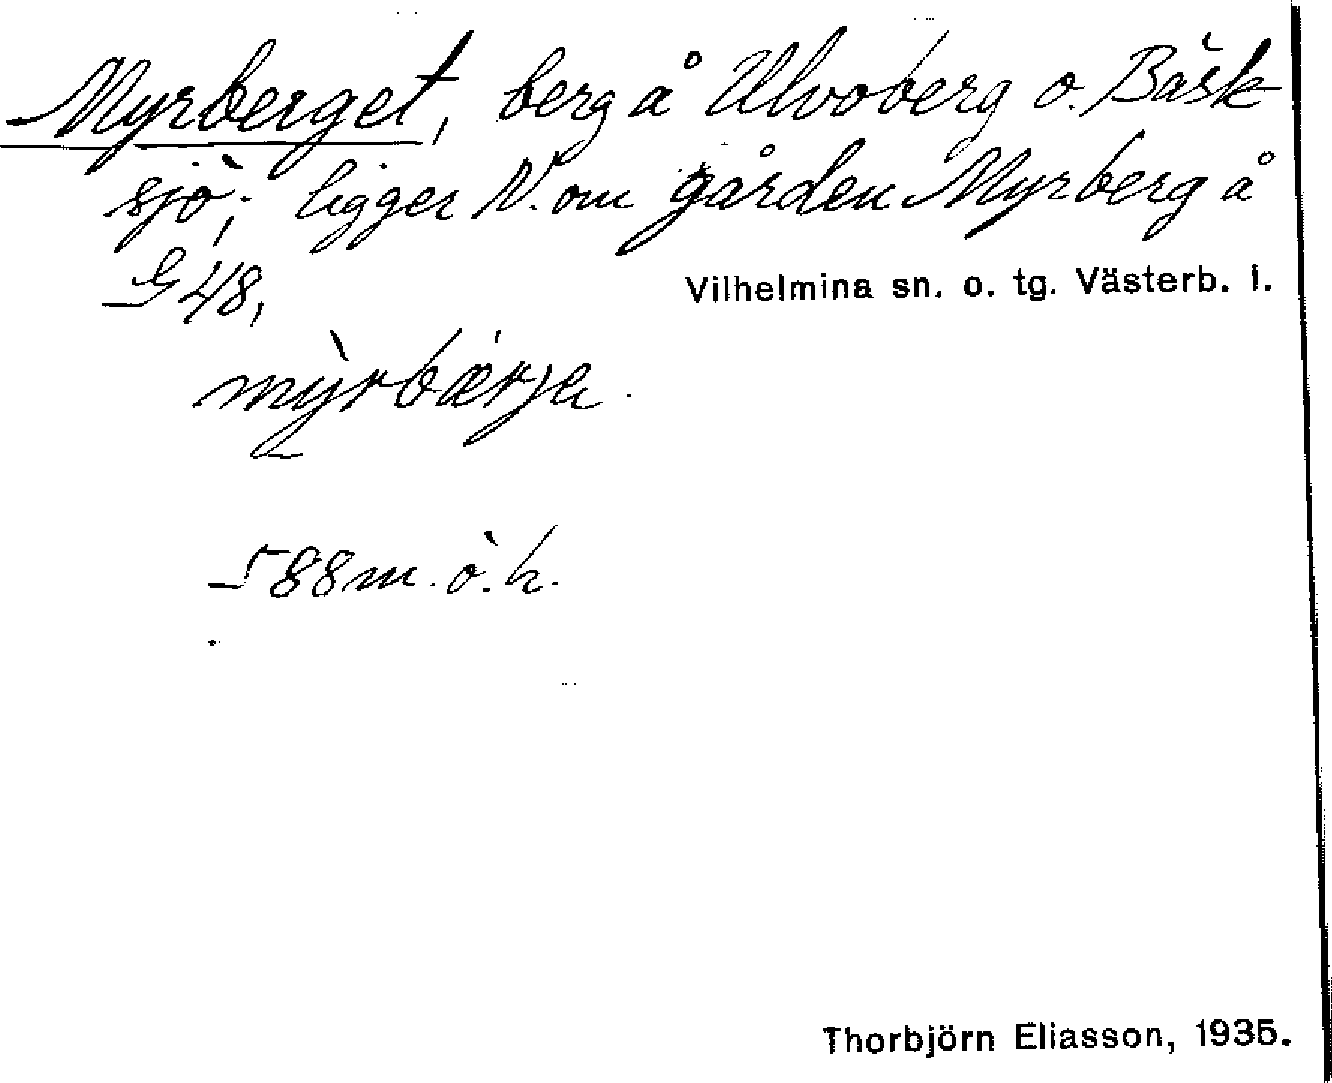 Myrberget, berg å Ulvoberg o. Bäsk
sjö; ligger N. om gården Myrberg å
G 48,
Vilhelmina sn. o. tg. Västerb. l.
mỳrbærja.
588 m. ö. h.
Thorbjörn Eliasson, 1935.